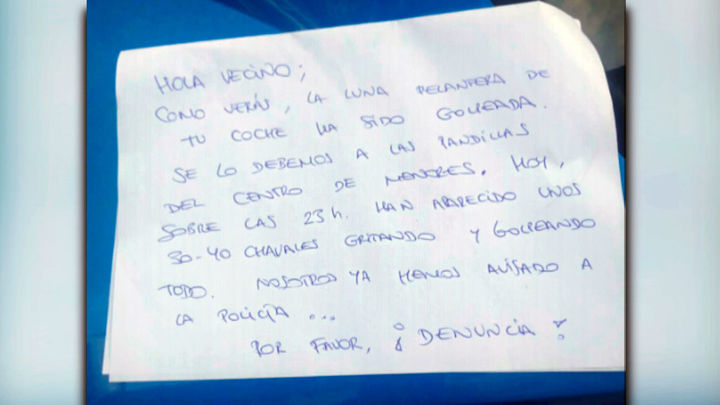 HOLA VECINO;
COMO VERÁS, LA LUNA DELANTERA DE
TU COCHE HA SIDO GOLPEADA.
SE LO DEBEMOS A LAS PANDILLAS
DEL CENTRO DE MENORES. HOY,
SOBRE LAS 23h. HAN APARECIDO UNOS
30-40 CHAVALES GRITANDO Y GOLPEANDO
TODO. NOSOTROS YA HEMOS AVISADO A
LA POLICÍA ...
POR FAVOR, ¡DENUNCIA!